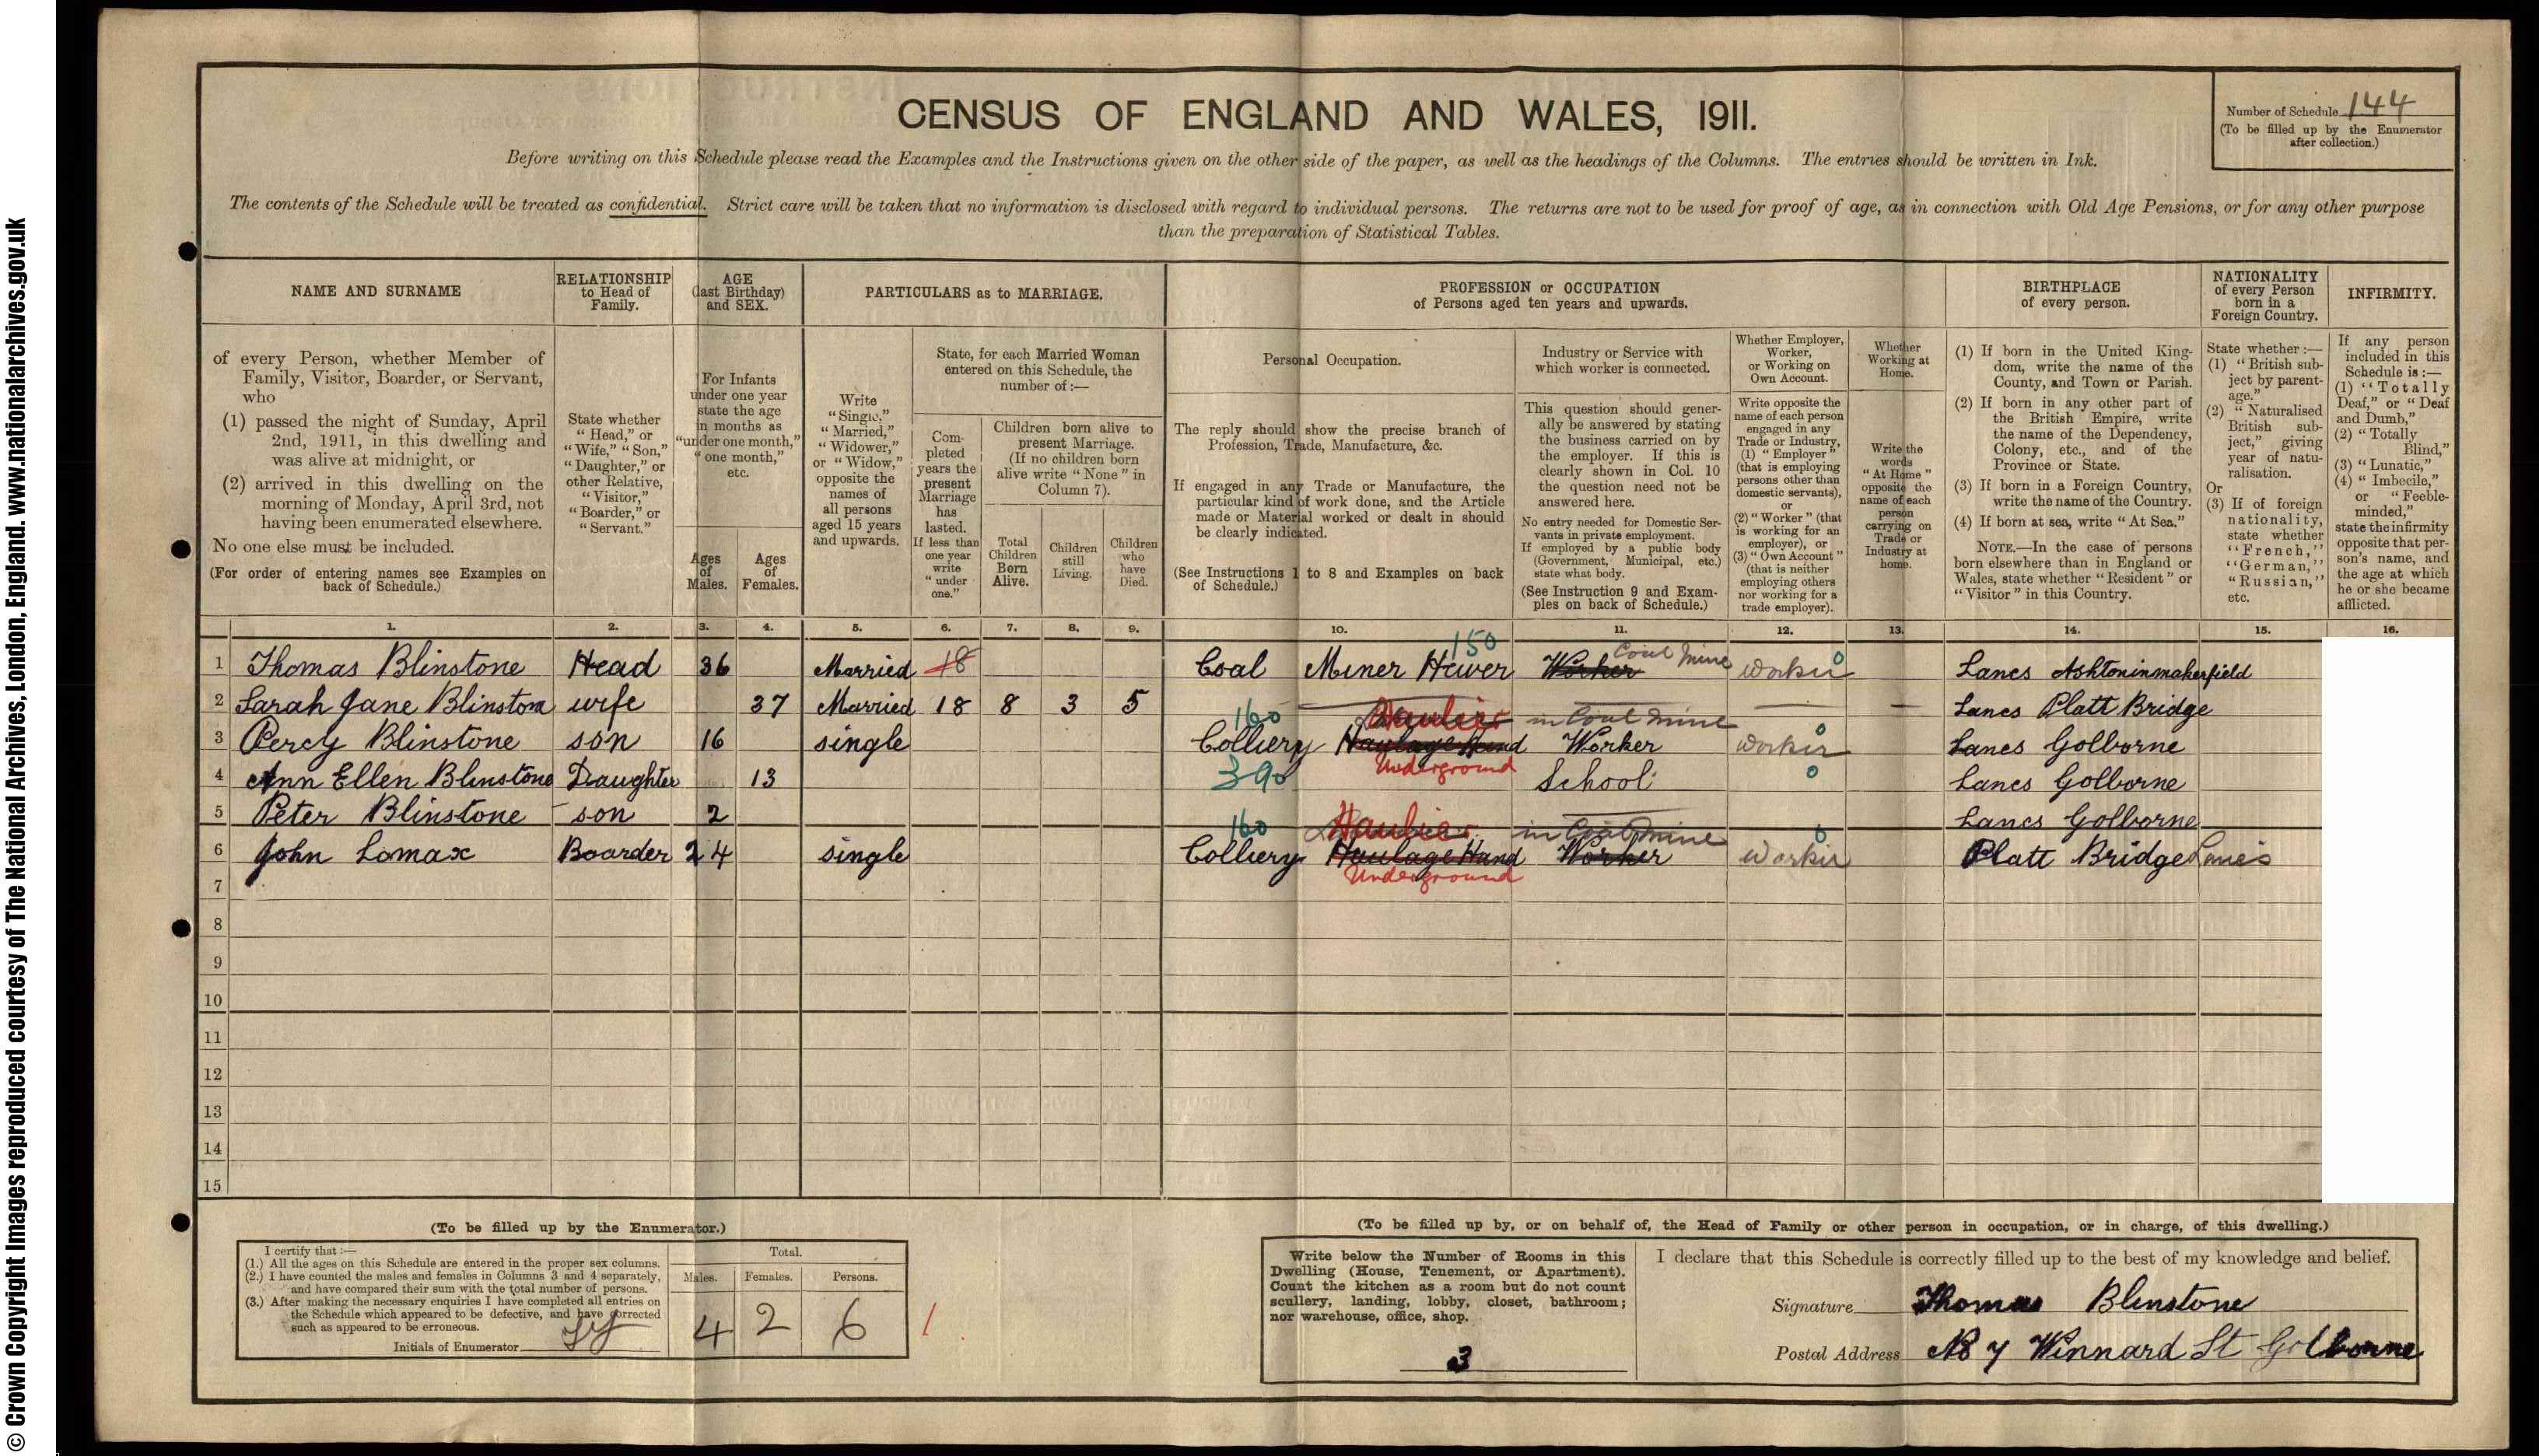 © Crown Copyright Images reproduced courtesy of The National Archives, London, England. www.nationalarchives.gov.uk
CENSUS OF ENGLAND AND WALES, 1911.
Number of Schedule 144
(To be filled up by the Enumerator
after collection.)
Before writing on this Schedule please read the Examples and the Instructions given on the other side of the paper, as well as the headings of the Columns. The entries should be written in Ink.
The contents of the Schedule will be treated as confidential. Strict care will be taken that no information is disclosed with regard to individual persons. The returns are not to be used for proof of age, as in connection with Old Age Pensions, or for any other purpose
than the preparation of Statistical Tables.
NAME AND SURNAME
of every Person, whether Member of
Family, Visitor, Boarder, or Servant,
who
(1) passed the night of Sunday, April
2nd, 1911, in this dwelling and
was alive at midnight, or
(2) arrived in this dwelling on the
morning of Monday, April 3rd, not
having been enumerated elsewhere.
No one else must be included.
(For order of entering names see Examples on
back of Schedule.)
RELATIONSHIP
to Head of
Family.
State whether
"Head," or
"Wife," "Son,"
"Daughter," or
other Relative,
"Visitor,"
"Boarder," or
"Servant."
AGE
(last Birthday)
and SEX.
For Infants
under one year
state the age
in months as
"under one month,"
"one month,"
etc.
Ages
of
Males.
Ages
of
Females.
PARTICULARS as to MARRIAGE.
Write
"Single,"
"Married,"
"Widower,"
or "Widow,"
opposite the
names of
all persons
aged 15 years
and upwards.
State, for each Married Woman
entered on this Schedule, the
number of:—
Com-
pleted
years the
present
Marriage
has
lasted.
If less than
one year
write
"under
one."
Children born alive to
present Marriage.
(If no children born
alive write "None" in
Column 7).
Total
Children
Born
Alive.
Children
still
Living.
Children
who
have
Died.
PROFESSION or OCCUPATION
of Persons aged ten years and upwards.
Personal Occupation.
The reply should show the precise branch of
Profession, Trade, Manufacture, &c.
If engaged in any Trade or Manufacture, the
particular kind of work done, and the Article
made or Material worked or dealt in should
be clearly indicated.
(See Instructions 1 to 8 and Examples on back
of Schedule.)
Industry or Service with
which worker is connected.
This question should gener-
ally be answered by stating
the business carried on by
the employer. If this is
clearly shown in Col. 10
the question need not be
answered here.
No entry needed for Domestic Ser-
vants in private employment.
If employed by a public body
(Government, Municipal, etc.)
state what body.
(See Instruction 9 and Exam-
ples on back of Schedule.)
Whether Employer,
Worker,
or Working on
Own Account.
Write opposite the
name of each person
engaged in any
Trade or Industry,
(1) "Employer"
(that is employing
persons other than
domestic servants),
or
(2) "Worker" (that
is working for an
employer), or
(3) "Own Account"
(that is neither
employing others
nor working for a
trade employer).
Whether
Working at
Home.
Write the
words
"At Home"
opposite the
name of each
person
carrying on
Trade or
Industry at
home.
BIRTHPLACE
of every person.
(1) If born in the United King-
dom, write the name of the
County, and Town or Parish.
(2) If born in any other part of
the British Empire, write
the name of the Dependency,
Colony, etc., and of the
Province or State.
(3) If born in a Foreign Country,
write the name of the Country.
(4) If born at sea, write "At Sea."
NOTE.—In the case of persons
born elsewhere than in England or
Wales, state whether "Resident" or
"Visitor" in this Country.
NATIONALITY
of every Person
born in a
Foreign Country.
State whether:—
(1) "British sub-
ject by parent-
age."
(2) "Naturalised
British sub-
ject," giving
year of natu-
ralisation.
Or
(3) If of foreign
nationality,
state whether
"French,"
"German,"
"Russian,"
etc.
INFIRMITY.
If any person
included in this
Schedule is:—
(1) "Totally
Deaf," or "Deaf
and Dumb,"
(2) "Totally
Blind,"
(3) "Lunatic,"
(4) "Imbecile,"
or "Feeble-
minded,"
state the infirmity
opposite that per-
son's name, and
the age at which
he or she became
afflicted.
1. 2. 3. 4. 5. 6. 7. 8. 9. 10. 11. 12. 13. 14. 15. 16.
150
1 Thomas Blinstone Head 36 Married 18 Coal Miner Hewer Worker Coal Mine Worker 0 Lancs Ashtoninmakerfield
2 Sarah Jane Blinstone wife 37 Married 18 8 3 5 — — — Lancs Platt Bridge
160 Haulier in Coal Mine 0
3 Percy Blinstone son 16 single Colliery Haulage Hand Worker Worker Lancs Golborne
Underground
4 Ann Ellen Blinstone Daughter 13 390 School 0 Lancs Golborne
5 Peter Blinstone son 2 Lancs Golborne
160 Haulier in Coal Mine 0
6 John Lomax Boarder 24 single Colliery Haulage Hand Worker Worker Platt Bridge Lancs
Underground
7
8
9
10
11
12
13
14
15
(To be filled up by the Enumerator.)
I certify that:—
(1.) All the ages on this Schedule are entered in the proper sex columns.
(2.) I have counted the males and females in Columns 3 and 4 separately,
and have compared their sum with the total number of persons.
(3.) After making the necessary enquiries I have completed all entries on
the Schedule which appeared to be defective, and have corrected
such as appeared to be erroneous.
Initials of Enumerator
Total.
Males. Females. Persons.
4 2 6 1
(To be filled up by, or on behalf of, the Head of Family or other person in occupation, or in charge, of this dwelling.)
Write below the Number of Rooms in this
Dwelling (House, Tenement, or Apartment).
Count the kitchen as a room but do not count
scullery, landing, lobby, closet, bathroom;
nor warehouse, office, shop.
3
I declare that this Schedule is correctly filled up to the best of my knowledge and belief.
Signature Thomas Blinstone
Postal Address No 7 Winnard St Golborne